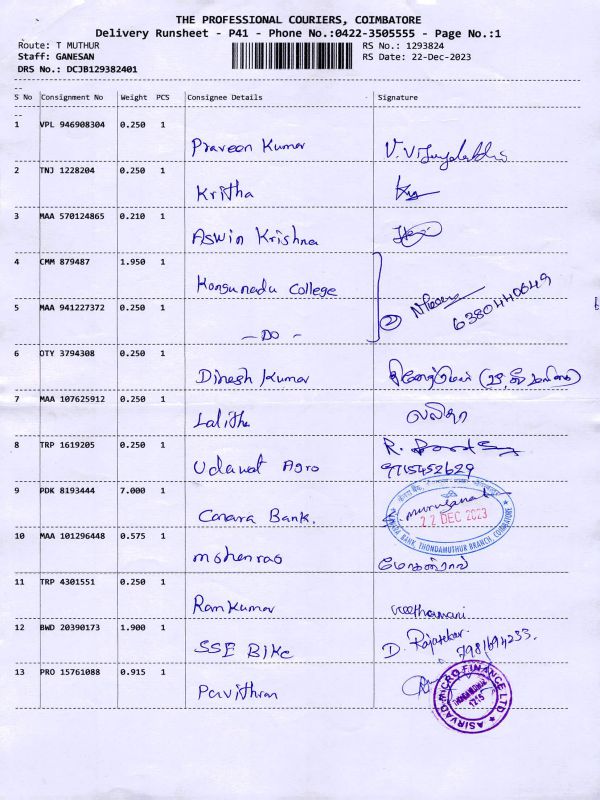 THE PROFESSIONAL COURIERS, COIMBATORE
Delivery Runsheet - P41 - Phone No.:0422-3505555 - Page No.:1
Route: T MUTHUR RS No.: 1293824
Staff: GANESAN RS Date: 22-Dec-2023
DRS No.: DCJB129382401
S No Consignment No Weight PCS Consignee Details Signature
1 VPL 946908304 0.250 1
Praveen Kumar
2 TNJ 1228204 0.250 1
Kritha
3 MAA 570124865 0.210 1
Aswin Krishna
4 CMM 879487 1.950 1
Kongunadu College
5 MAA 941227372 0.250 1
-DO- 2 6380440649
6 OTY 3794308 0.250 1
Dinesh Kumar
7 MAA 107625912 0.250 1
Lalitha லலிதா
8 TRP 1619205 0.250 1
Udawat Agro 9715452629
9 PDK 8193444 7.000 1
Canara Bank. Muruganat
22 DEC 2023
CANARA BANK, THONDAMUTHUR BRANCH, COIMBATORE
10 MAA 101296448 0.575 1
Mohanrao மோகன்ராவ்
11 TRP 4301551 0.250 1
Ramkumar Veethamani
12 BWD 20390173 1.900 1
SSE Bike D. Rajasekar.
7981694233.
13 PRO 15761088 0.915 1
Pavithran
ASIRVAD MICRO FINANCE LTD
1215